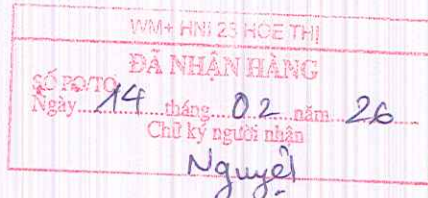 WM+ HNI 23 HOE THỊ
ĐÃ NHẬN HÀNG
SỐ PO/TO
Ngày 14 tháng 02 năm 26
Chữ ký người nhận
Nguyệt